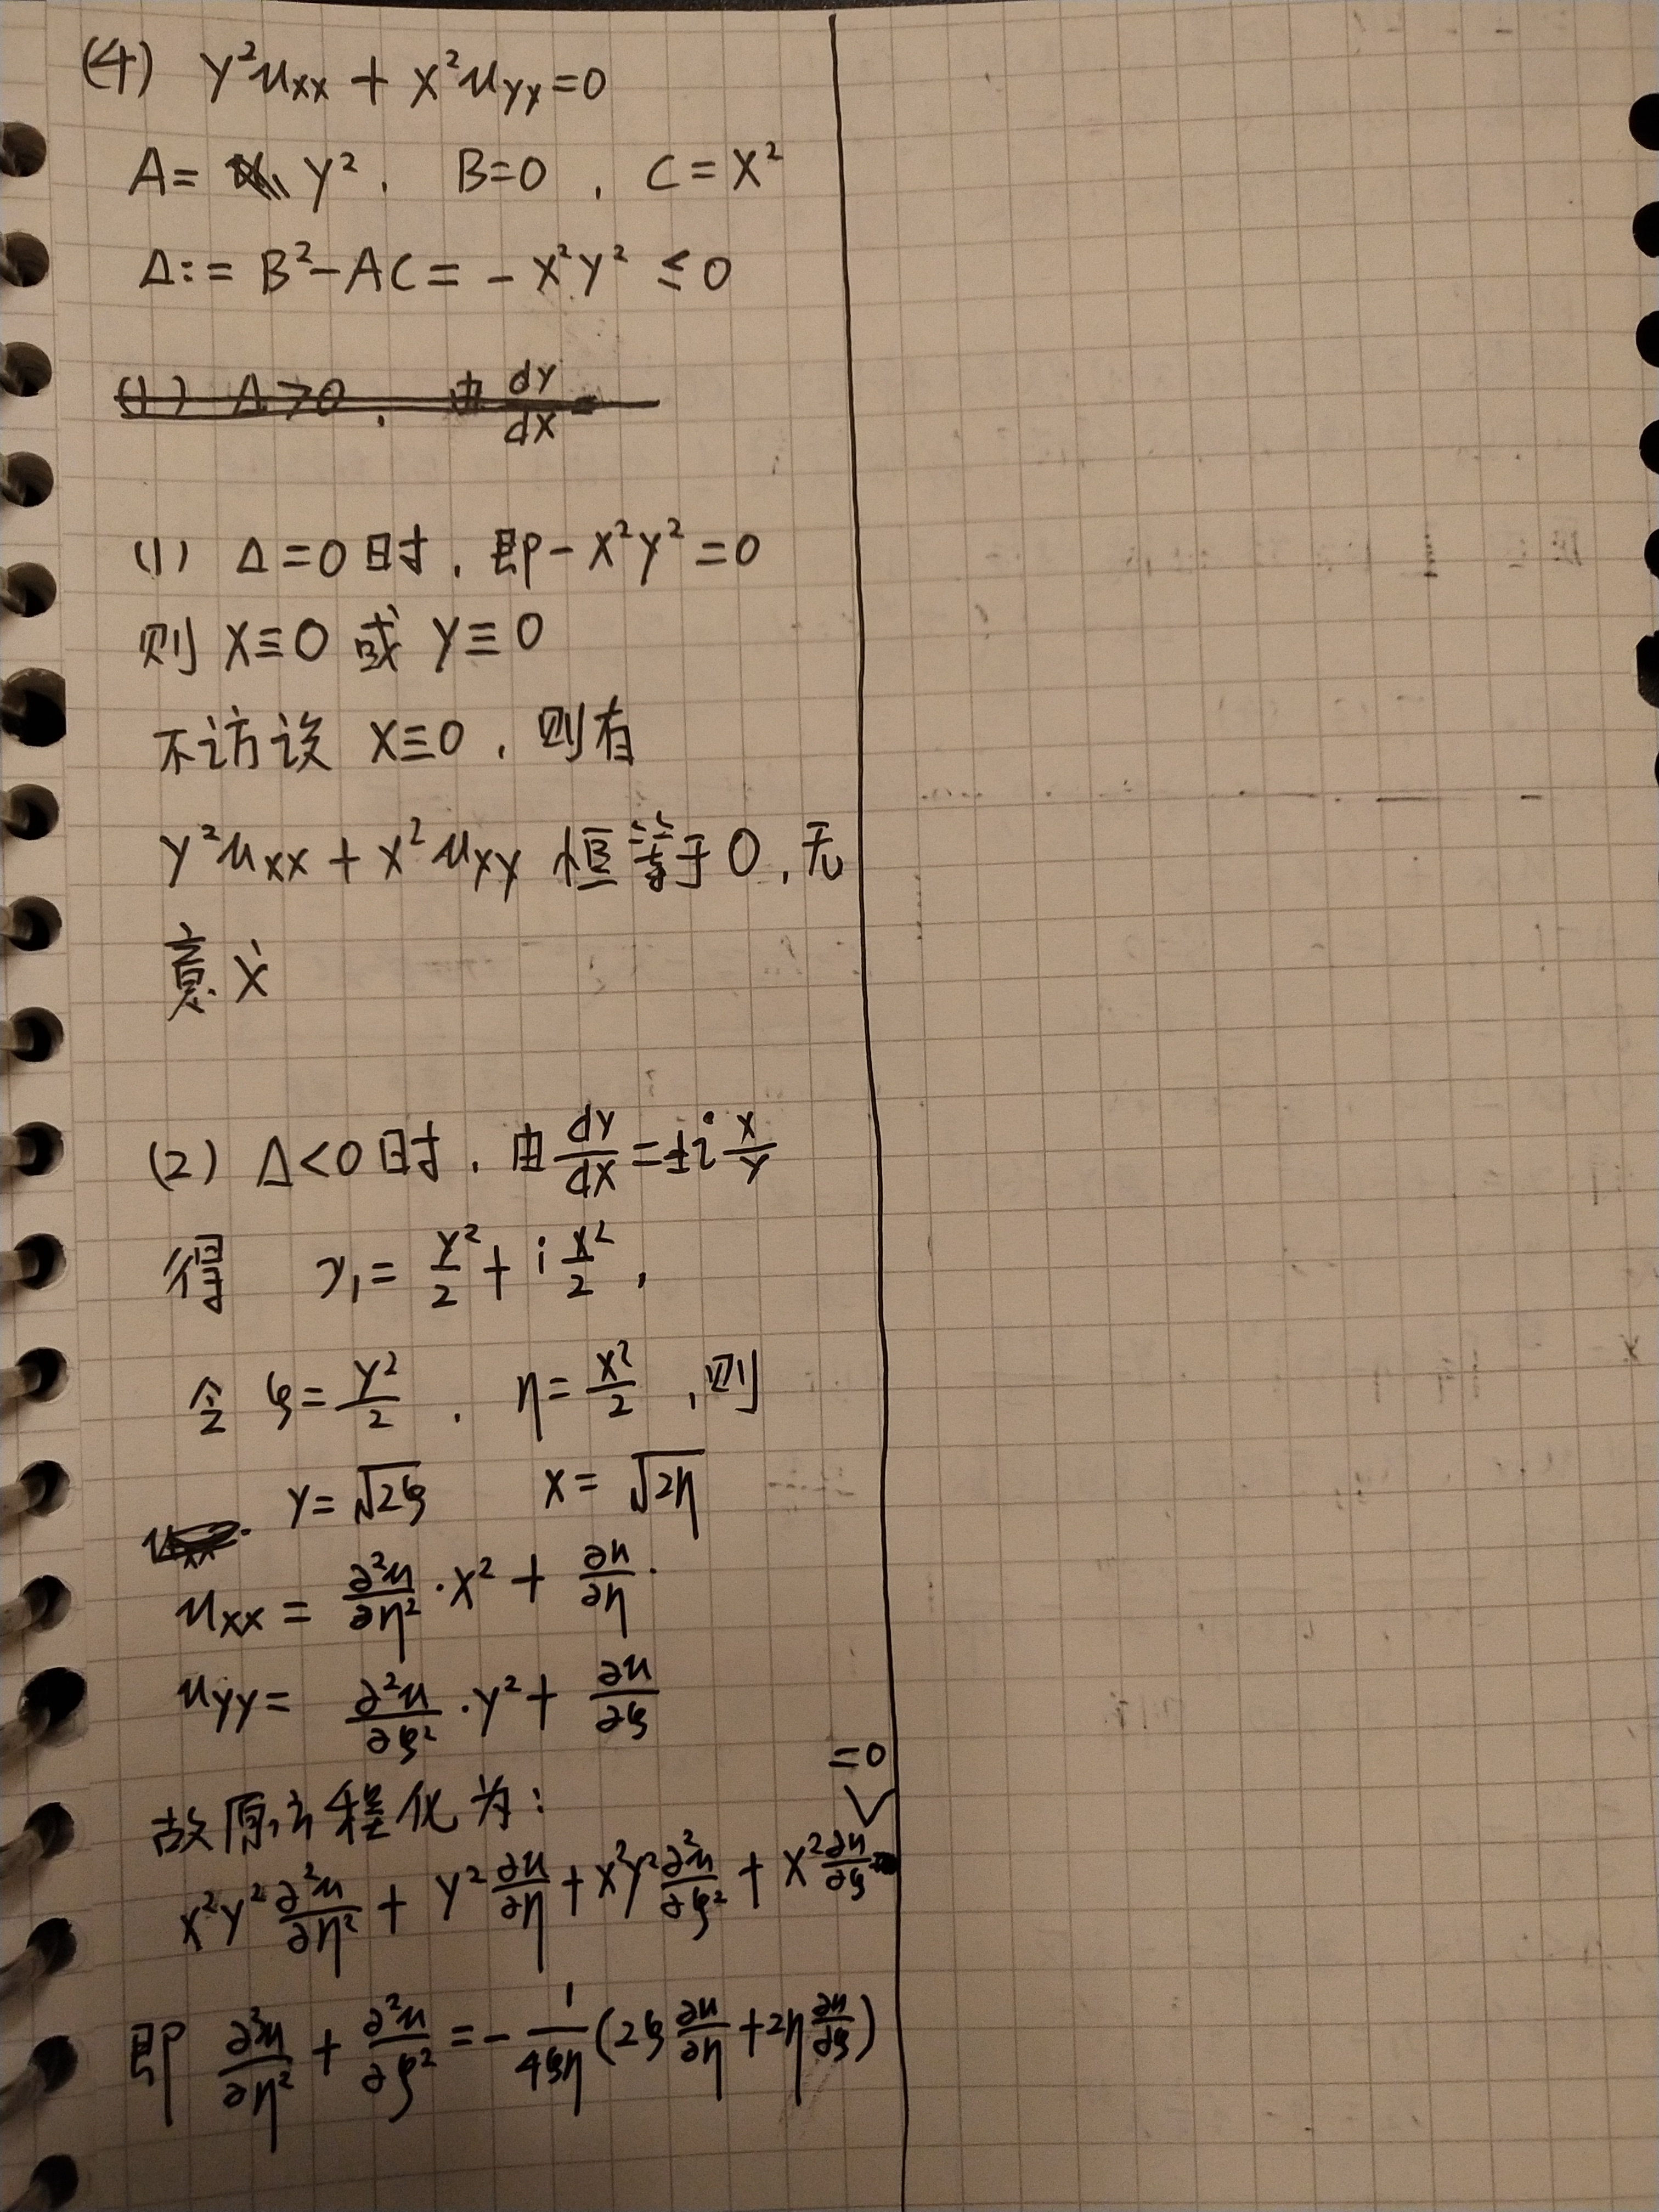 (4) y²uxx + x²uyy = 0
A = y², B=0, C = x²
Δ := B² - AC = - x²y² ≤ 0
(1) Δ>0, 由 dy/dx =
(1) Δ=0时, 即 - x²y² = 0
则 x≡0 或 y≡0
不访设 x≡0, 则有
y²uxx + x²uxy 恒等于0, 无
意义
(2) Δ<0时, 由 dy/dx = ±i x/y
得 γ₁ = y²/2 + i x²/2,
令 ξ = y²/2, η = x²/2, 则
y = √2ξ x = √2η
uxx = ∂²u/∂η² · x² + ∂u/∂η.
uyy = ∂²u/∂ξ² · y² + ∂u/∂ξ
故原方程化为:
x²y² ∂²u/∂η² + y² ∂u/∂η + x²y² ∂²u/∂ξ² + x² ∂u/∂ξ =0
即 ∂²u/∂η² + ∂²u/∂ξ² = - 1/4ξη (2ξ ∂u/∂η + 2η ∂u/∂ξ)